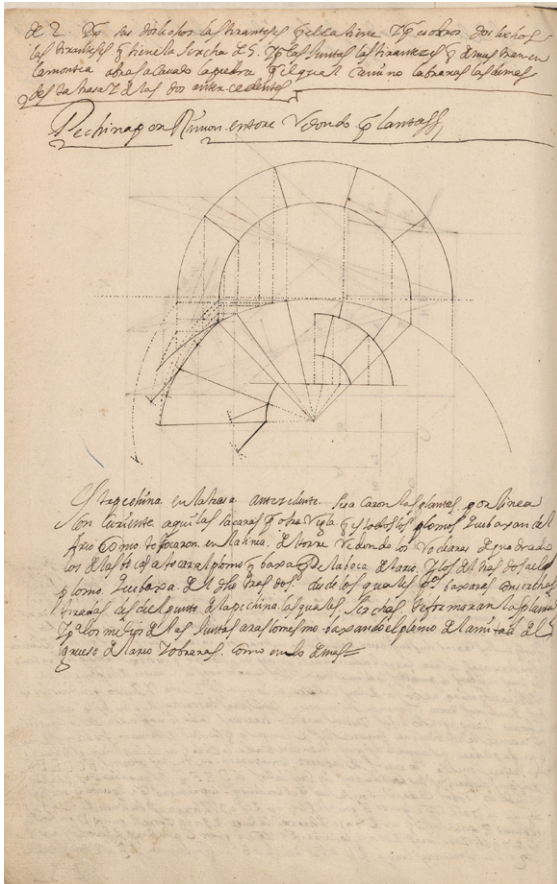 de 2. Dy sus dos lechos las tiranteses q ella tiene y p esotros dos lechos
las tiranteses q tiene la sercha de 5. y p las Juntas las tiranteses q demuestran en
la montea abras acauado la piedra q el qual camino labraras las demas
de esta trasa y de las dos antecedentes
Pechina en Rincon en torre Redondo p plantas
Esta pechina en la trasa antecedente se sacaron las plantas por linea
con aqui las sacaras p otra Regla q es todos los plomos que baxan del
Arco Como tocaron en la linia de torre Redondo los de quadrado
los de las tocas a tocar el plomo q baxa de la boca del arco y los del tras dos a el
plomo que baxa del dho tras dos desde los quales baxaras en serchas
serradas desde el punto de la pechina las quales serchas te formaran la planta
y p los medios de las Juntas aras lo mesmo baxando el plomo de la mitad del
grueso del arco y obraras como en lo demas